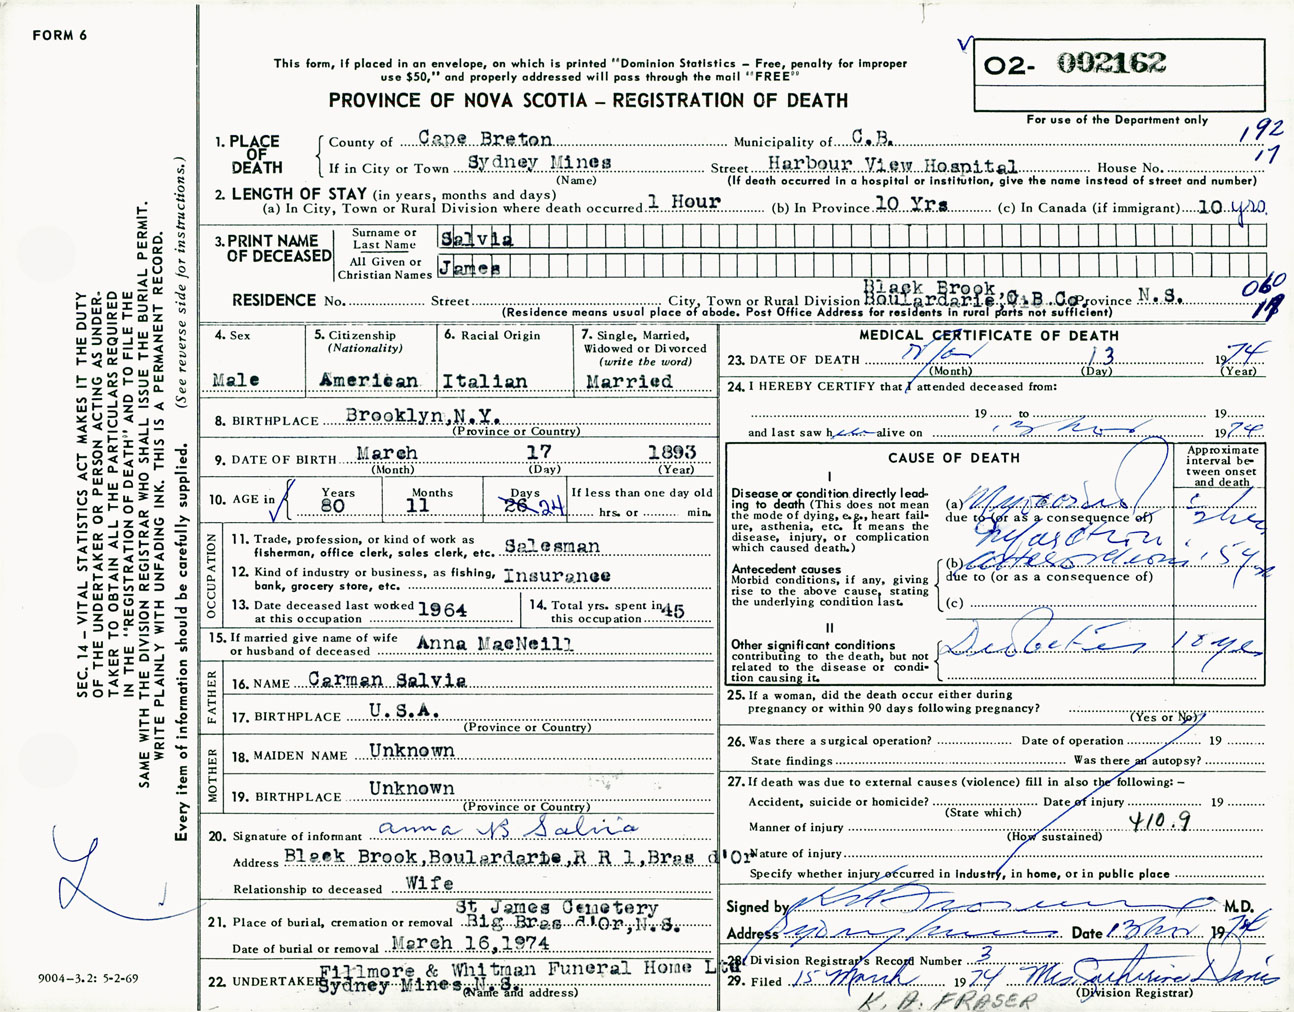 FORM 6
This form, if placed in an envelope, on which is printed "Dominion Statistics – Free, penalty for improper
use $50," and properly addressed will pass through the mail "FREE"
PROVINCE OF NOVA SCOTIA – REGISTRATION OF DEATH
02- 002162
For use of the Department only
192
17
1. PLACE OF DEATH
County of Cape Breton Municipality of C.B.
If in City or Town Sydney Mines Street Harbour View Hospital House No.
(Name) (If death occurred in a hospital or institution, give the name instead of street and number)
2. LENGTH OF STAY (in years, months and days)
(a) In City, Town or Rural Division where death occurred 1 Hour (b) In Province 10 Yrs (c) In Canada (if immigrant) 10 yrs.
3. PRINT NAME OF DECEASED
Surname or Last Name Salvia
All Given or Christian Names James
Black Brook,
RESIDENCE No. Street City, Town or Rural Division Boulardarie, C.B Co, Province N.S.
(Residence means usual place of abode. Post Office Address for residents in rural parts not sufficient)
060
17
4. Sex
Male
5. Citizenship
(Nationality)
American
6. Racial Origin
Italian
7. Single, Married,
Widowed or Divorced
(write the word)
Married
8. BIRTHPLACE Brooklyn,N.Y.
(Province or Country)
9. DATE OF BIRTH March 17 1893
(Month) (Day) (Year)
10. AGE in Years Months Days If less than one day old
80 11 26 24 hrs. or min.
OCCUPATION
11. Trade, profession, or kind of work as
fisherman, office clerk, sales clerk, etc. Salesman
12. Kind of industry or business, as fishing,
bank, grocery store, etc. Insurance
13. Date deceased last worked
at this occupation 1964
14. Total yrs. spent in
this occupation 45
15. If married give name of wife
or husband of deceased Anna MacNeill
FATHER
16. NAME Carman Salvia
17. BIRTHPLACE U.S.A.
(Province or Country)
MOTHER
18. MAIDEN NAME Unknown
19. BIRTHPLACE Unknown
(Province or Country)
20. Signature of informant Anna B Salvia
Address Black Brook,Boulardarie,R R 1,Bras d'Or
Relationship to deceased Wife
St James Cemetery
21. Place of burial, cremation or removal Big Bras d'Or,N.S.
Date of burial or removal March 16,1974
Fillmore & Whitman Funeral Home Ltd
22. UNDERTAKER Sydney Mines,N.S.
(Name and address)
MEDICAL CERTIFICATE OF DEATH
23. DATE OF DEATH Mar 13 1974
(Month) (Day) (Year)
24. I HEREBY CERTIFY that I attended deceased from:
19 to 19
and last saw h alive on 13 1974
CAUSE OF DEATH
Approximate
interval be-
tween onset
and death
I
Disease or condition directly lead-
ing to death (This does not mean
the mode of dying, e.g., heart fail-
ure, asthenia, etc. It means the
disease, injury, or complication
which caused death.)
(a)
due to (or as a consequence of)
Antecedent causes
Morbid conditions, if any, giving
rise to the above cause, stating
the underlying condition last.
(b)
due to (or as a consequence of)
(c)
II
Other significant conditions
contributing to the death, but not
related to the disease or condi-
tion causing it.
Diabetes 10 yrs
25. If a woman, did the death occur either during
pregnancy or within 90 days following pregnancy?
(Yes or No)
26. Was there a surgical operation? Date of operation 19
State findings Was there an autopsy?
27. If death was due to external causes (violence) fill in also the following: –
Accident, suicide or homicide? Date of injury 19
(State which)
Manner of injury 410.9
(How sustained)
Nature of injury
Specify whether injury occurred in Industry, in home, or in public place
Signed by M.D.
Address Date 13 1974
28. Division Registrar's Record Number 3
29. Filed 15 March 1974 Mrs. Catherine Davis
(Division Registrar)
K. A. FRASER
SEC. 14 – VITAL STATISTICS ACT MAKES IT THE DUTY
OF THE UNDERTAKER OR PERSON ACTING AS UNDER-
TAKER TO OBTAIN ALL THE PARTICULARS REQUIRED
IN THE "REGISTRATION OF DEATH" AND TO FILE THE
SAME WITH THE DIVISION REGISTRAR WHO SHALL ISSUE THE BURIAL PERMIT.
WRITE PLAINLY WITH UNFADING INK. THIS IS A PERMANENT RECORD.
Every item of information should be carefully supplied. (See reverse side for instructions.)
9004–3.2: 5-2-69